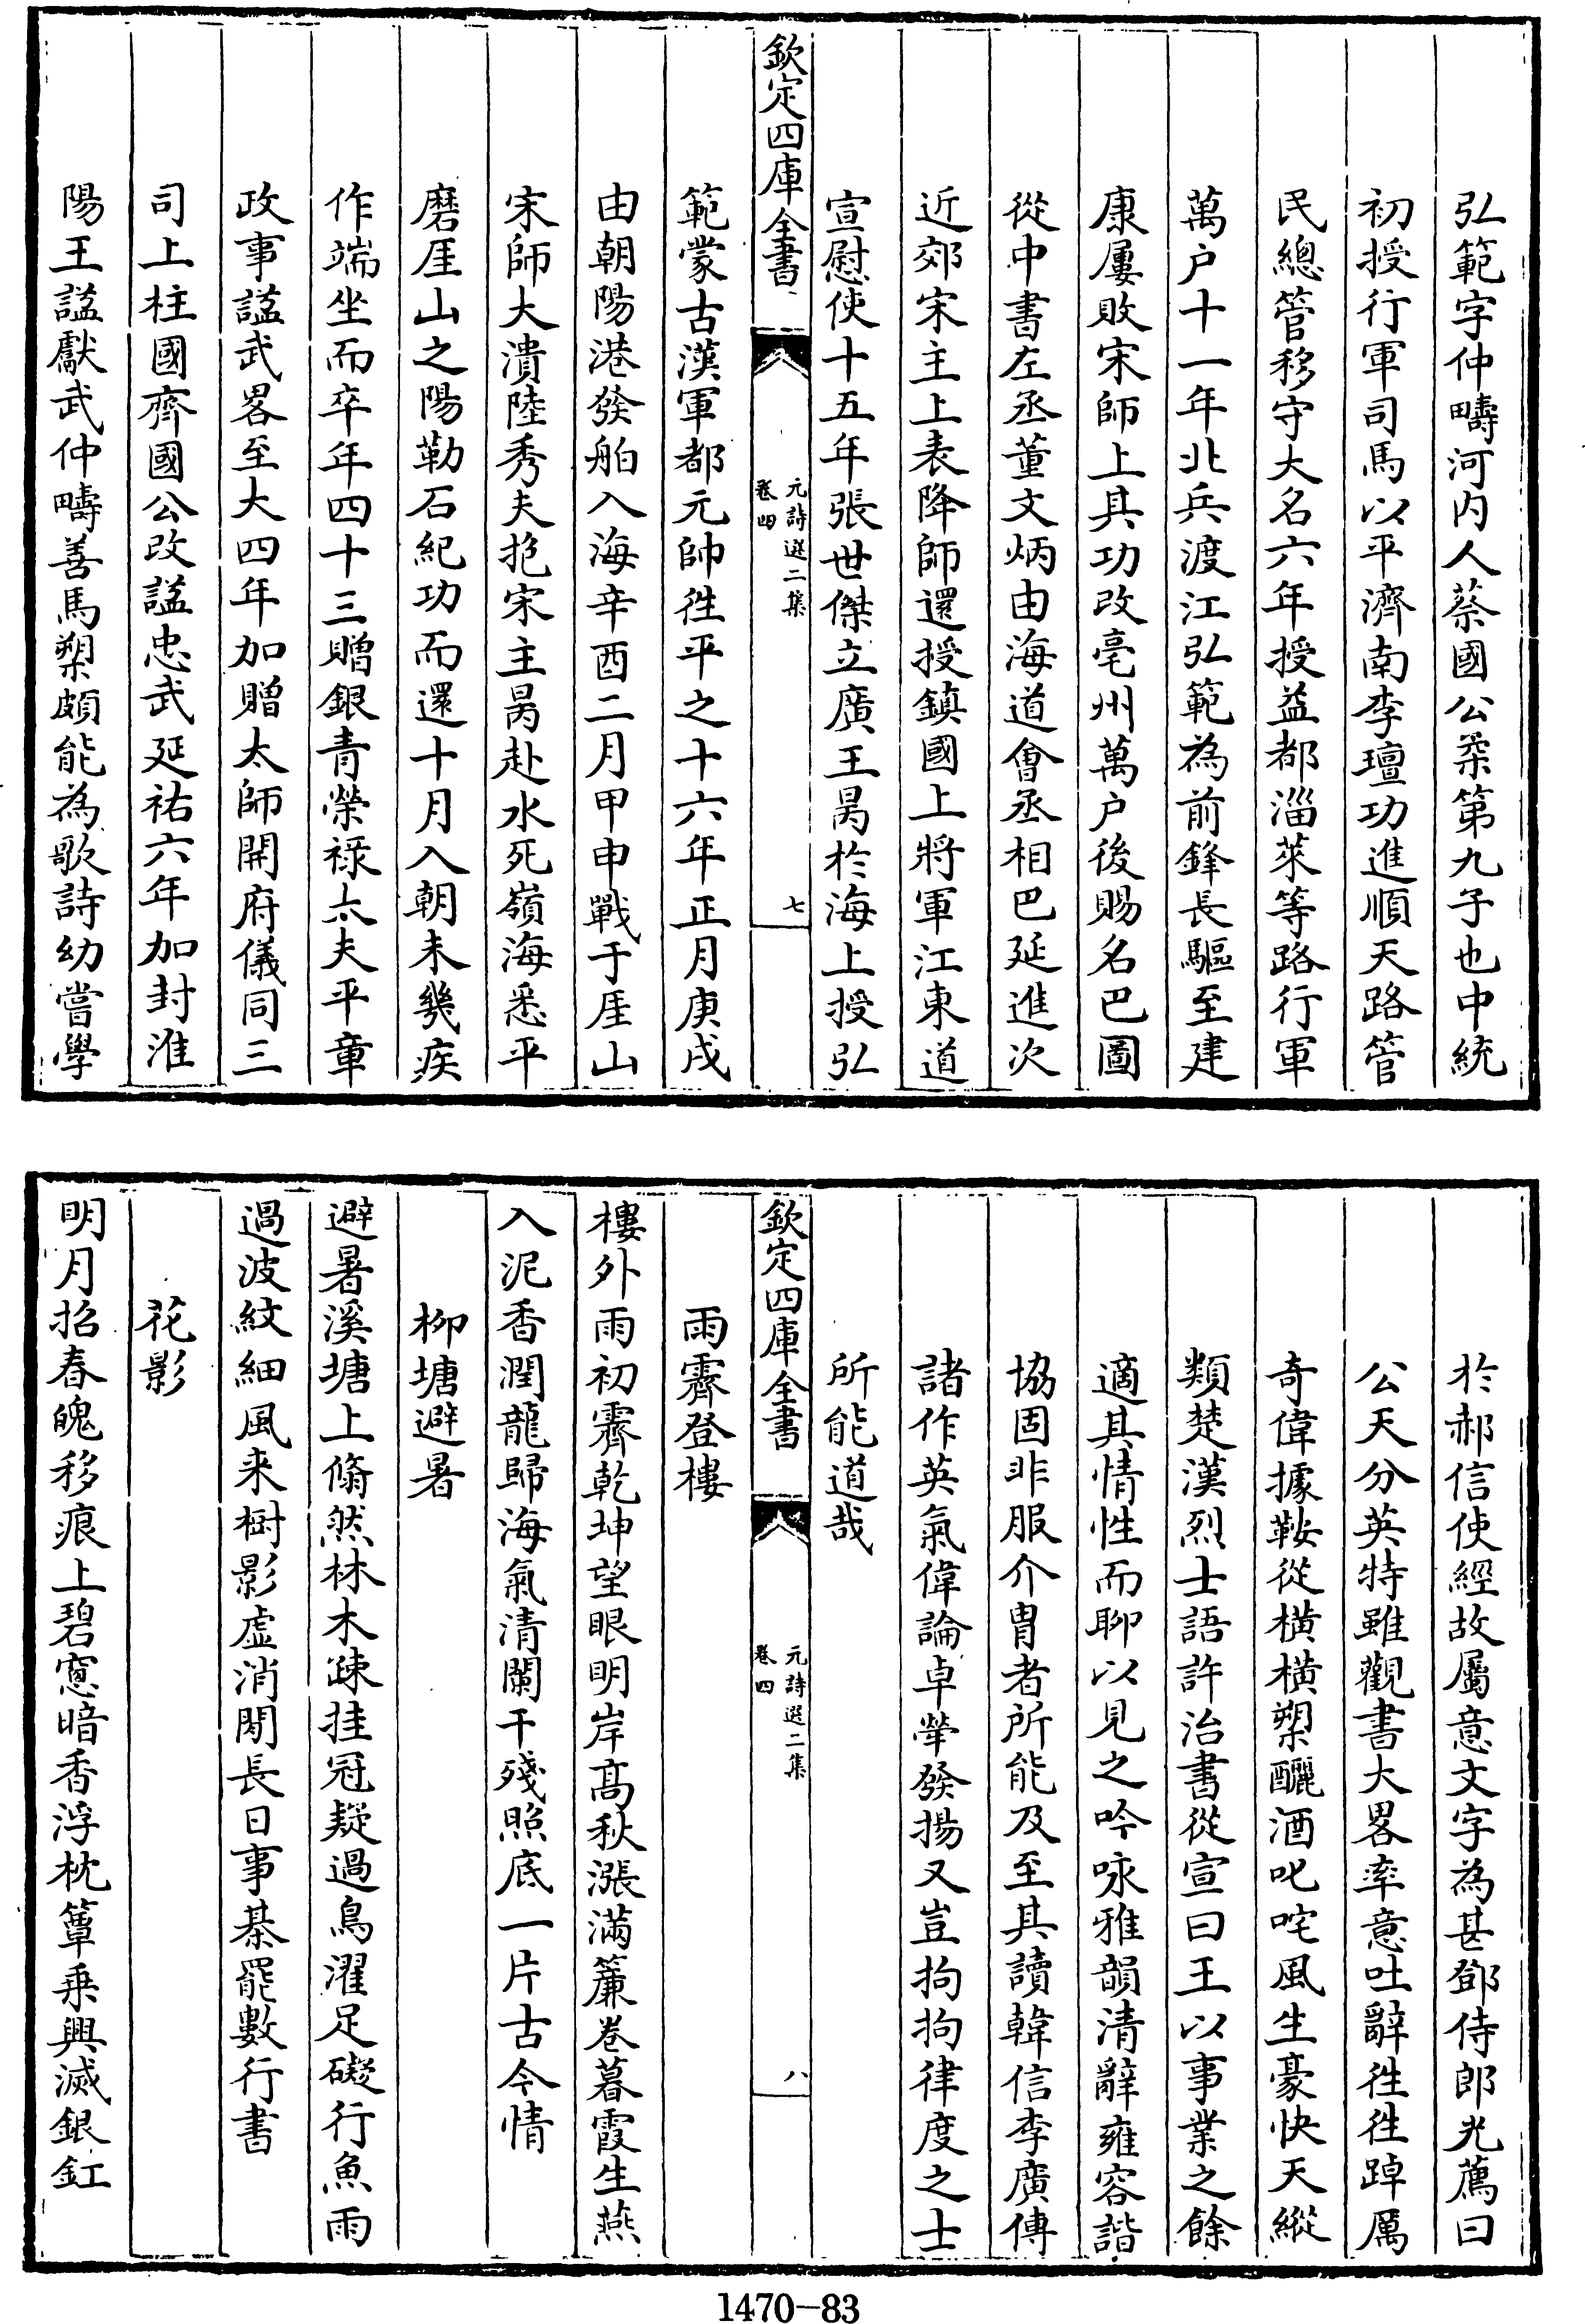 弘範字仲疇河内人蔡國公柔第九子也中統
初授行軍司馬以平濟南李璮功進順天路管
民總管移守大名六年授益都淄萊等路行軍
萬户十一年北兵渡江弘範為前鋒長驅至建
康屢敗宋師上其功改亳州萬户後賜名巴圖
從中書左丞董文炳由海道會丞相巴延進次
近郊宋主上表降師還授鎮國上將軍江東道
宣慰使十五年張世傑立廣王昺於海上授弘
欽定四庫全書
元詩選二集
卷四
七
範蒙古漢軍都元帥徃平之十六年正月庚戌
由朝陽港發舶入海辛酉二月甲申戰于厓山
宋師大潰陸秀夫抱宋主昺赴水死嶺海悉平
磨厓山之陽勒石紀功而還十月入朝未幾疾
作端坐而卒年四十三贈銀青榮祿大夫平章
政事諡武畧至大四年加贈太師開府儀同三
司上柱國齊國公改諡忠武延祐六年加封淮
陽王諡獻武仲疇善馬槊頗能為歌詩幼嘗學
於郝信使經故屬意文字為甚鄧侍郎光薦曰
公天分英特雖觀書大畧率意吐辭徃徃踔厲
奇偉據鞍從橫橫槊釃酒叱咤風生豪快天縱
類楚漢烈士語許治書從宣曰王以事業之餘
適其情性而聊以見之吟咏雅韻清辭雍容諧
協固非服介胄者所能及至其讀韓信李廣傳
諸作英氣偉論卓犖發揚又豈拘拘律度之士
所能道哉
欽定四庫全書
元詩選二集
卷四
八
雨霽登樓
樓外雨初霽乾坤望眼明岸髙秋漲滿簾卷暮霞生燕
入泥香潤龍歸海氣清闌干殘照底一片古今情
柳塘避暑
避暑溪塘上翛然林木疎挂冠疑過鳥濯足礙行魚雨
過波紋細風来樹影虚消閒長日事棊罷數行書
花影
明月招春魄移痕上碧窻暗香浮枕簟乗興滅銀釭
1470-83